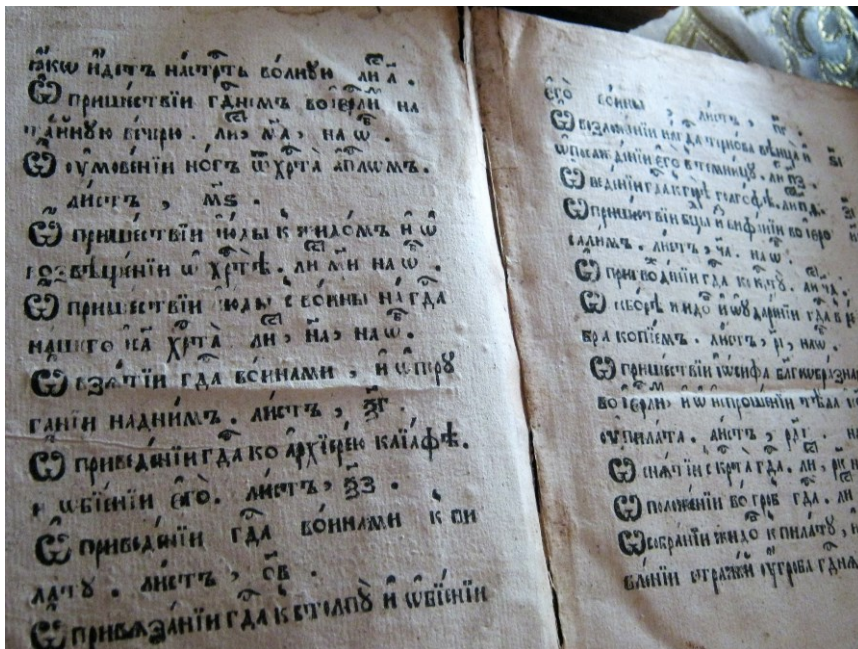 ꙗ҆́кѡ и҆́детъ на стрⷭ҇ть во́лную ли҇ л҃.
Ѡ҆ прише́ствїи гдⷭ҇немъ во і҆ер҇ли́м на
та́йную ве́черю . ли҇, м҃а, на ѡ҇ .
Ѡ҆ ᲂу҆мове́нїи но́гъ ѿ хрⷭ҇та̀ а҆пⷭ҇лѡмъ.
ли́стъ , м҃ѕ .
Ѡ҆ прише́ствїи і҆ю́ды к̾ жидо́мъ и҆ ѡ҆
возвѣще́нїи ѡ҆ хрⷭ҇тѣ̀ . ли҇ м҃и на ѡ҇ .
Ѡ҆ прише́ствїи і҆ю́ды с̾ во́ины на гдⷭ҇а
на́шего і҆с҃а хрⷭ҇та̀ ли҇, н҃а, на ѡ҇ .
Ѡ҆ взѧ́тїи гдⷭ҇а во́инами , и҆ ѡ҆ пору
га́нїи на́дни́мъ . ли́стъ , ѯ҃г .
Ѡ҆ приведе́нїи гдⷭ҇а ко а҆рхїере́ю каїа́фѣ.
и҆ ѡ҆ бїе́нїи є҆гѡ̀. ли́стъ , ѯ҃з .
Ѡ҆ приведе́нїи гдⷭ҇а во́инами к̾ пи
ла́ту . ли́стъ , о҃в .
Ѡ҆ привѧза́нїи гдⷭ҇а к̾ столпꙋ̀ и҆ ѡ҆ бїе́нїи
є҆гѡ̀ во́ины , ли́стъ ,
Ѡ҆ возложе́нїи на гдⷭ҇а те́рнова вѣнца̀ и҆
ѡ҆ посажде́нїи є҆гѡ̀ в те́мницꙋ. ли҇
Ѡ҆ веде́нїи гдⷭ҇а к̾ горѣ̀ голго́ѳѣ. ли҇
Ѡ҆ прише́ствїи бцⷣы и҆з̾ виѳа́нїи во і҆еро
сали́мъ . ли́стъ , ч҃а . на ѡ҇ .
Ѡ҆ пригвожде́нїи гдⷭ҇а ко крⷭ҇тꙋ̀ . ли҇ ч҃д .
Ѡ҆ собо́рѣ жидо́в и҆ ѡ҆ ᲂу҆даре́нїи гдⷭ҇а в̾ ре́
бра копїе́мъ . ли́стъ , р҃і , на ѡ҇ .
Ѡ҆ прише́ствїи і҆ѡ́сифа бл҃гѡѡбра́зна
во і҆ер҇ли́м и҆ ѡ҆ испроше́нїи тѣ́ла
ᲂу҆ пила́та . ли́стъ ,
Ѡ҆ снѧ́тїи с̾ крⷭ҇та̀ гдⷭ҇а . ли҇ ,
Ѡ҆ положе́нїи во гро́бъ гдⷭ҇а . ли҇
Ѡ҆ собра́нїи жидо́в к̾ пила́тꙋ ,
вле́нїи стра́жей ᲂу҆ гро́ба гдⷭ҇нѧ